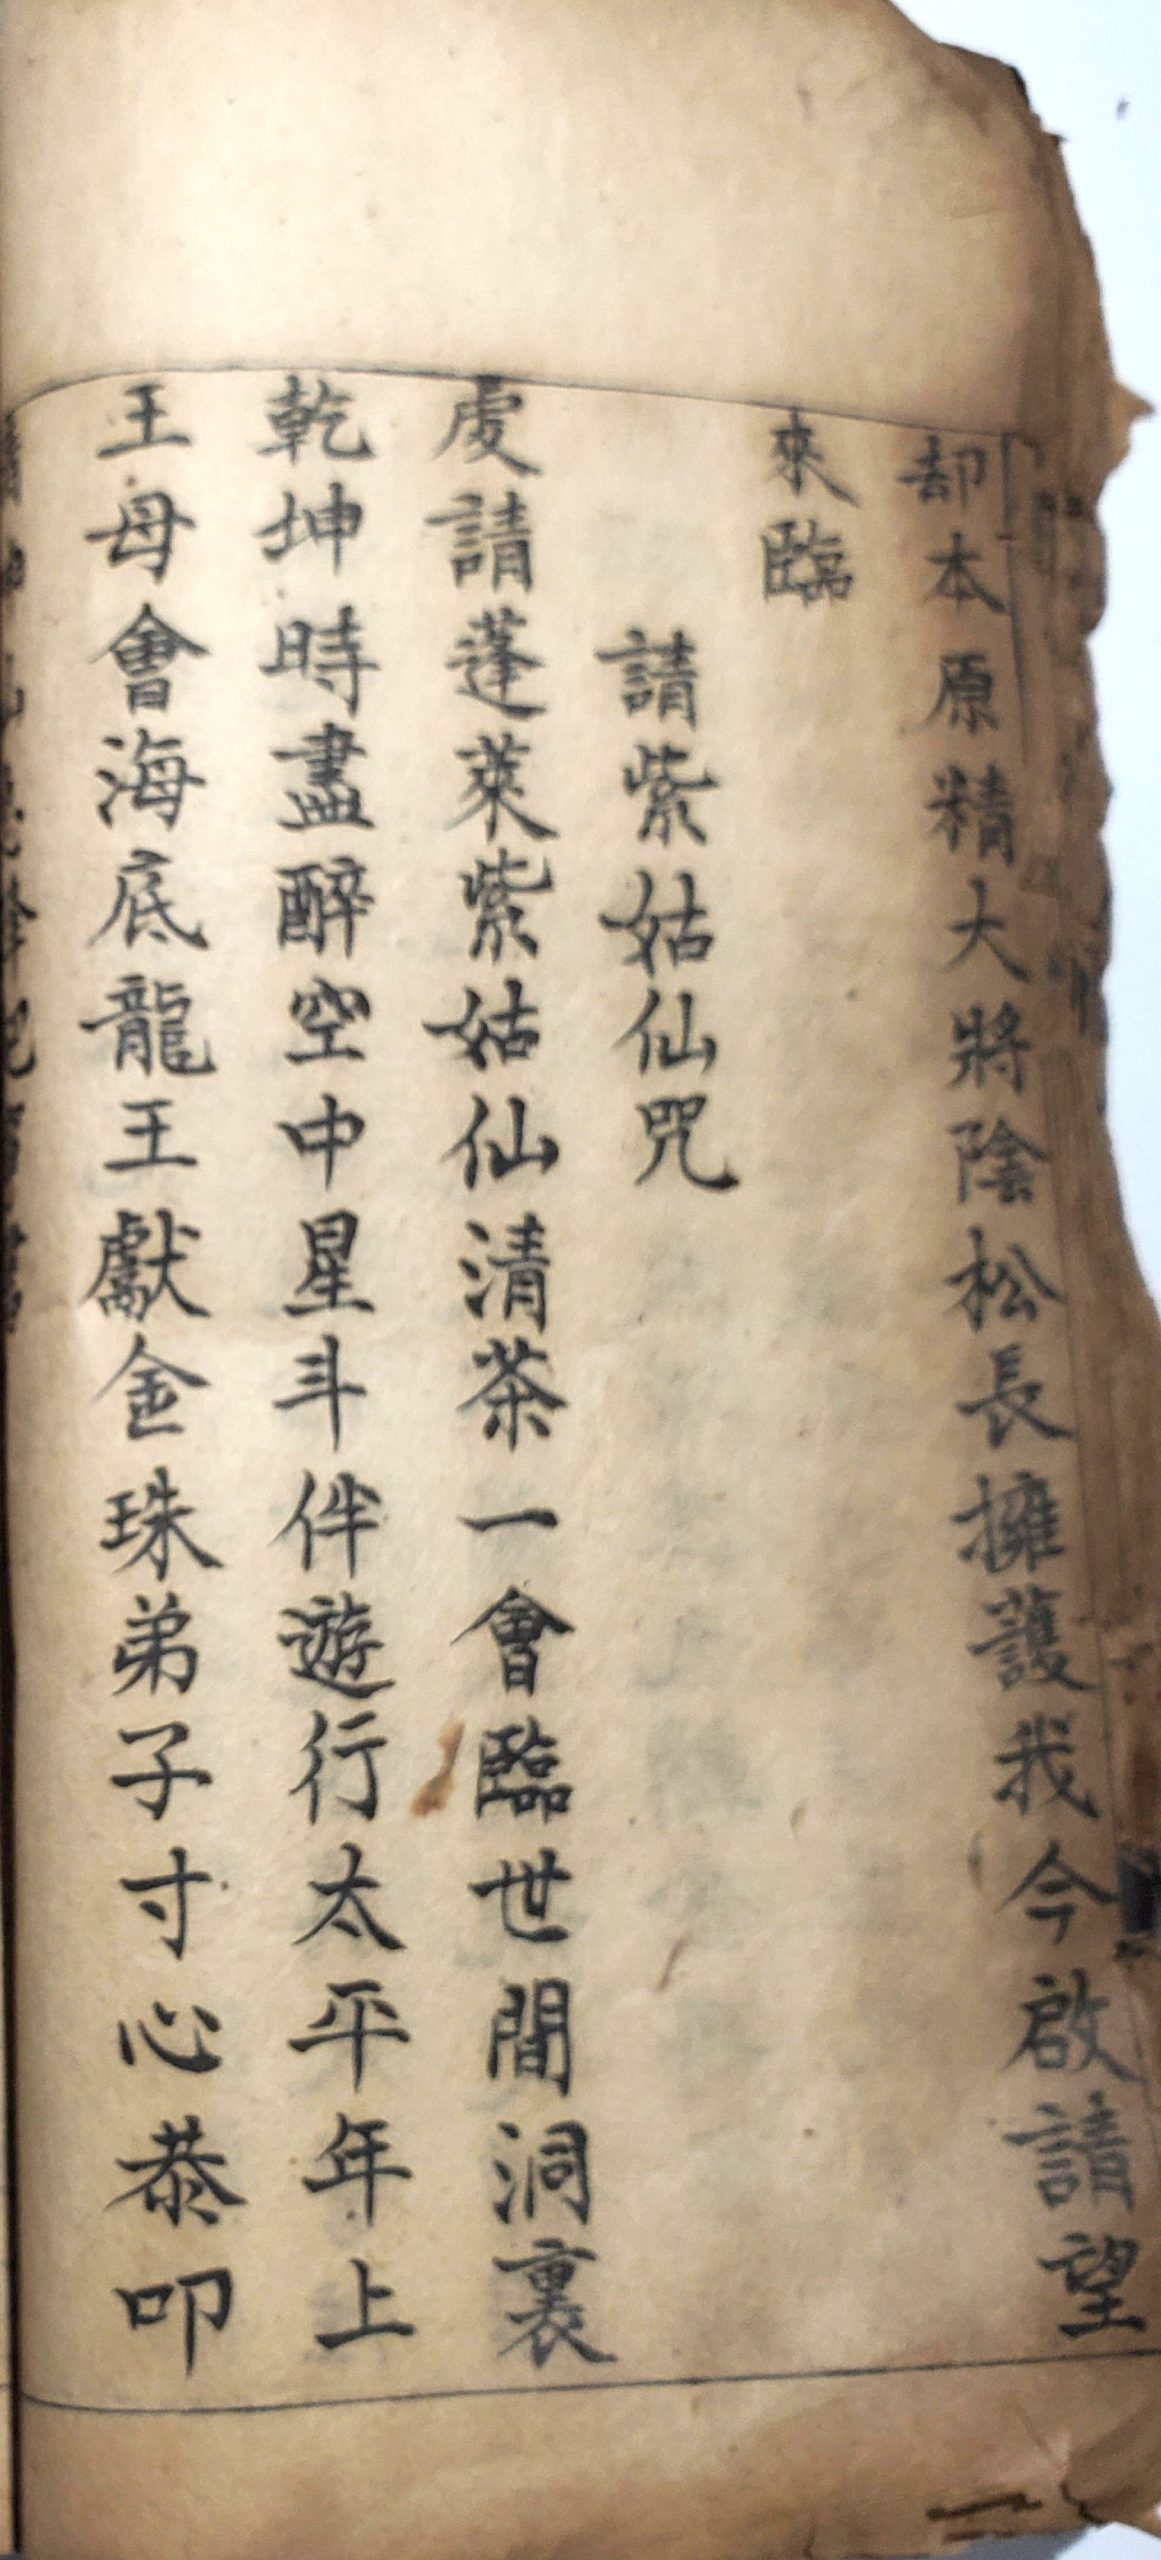 却本原精大將陰松長擁護我今啟請望
來臨
請紫姑仙咒
虔請蓬萊紫姑仙清茶一會臨世間洞裏
乾坤時盡醉空中星斗伴遊行太平年上
王母會海底龍王獻金珠弟子寸心恭叩